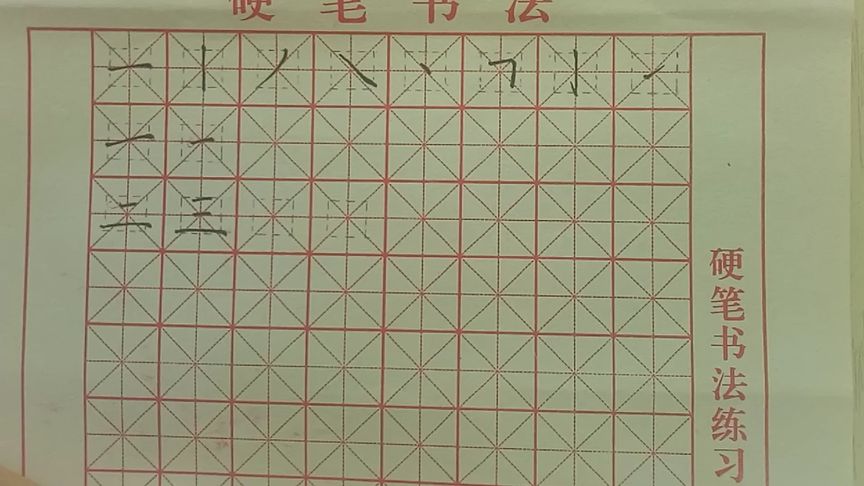 硬笔书法
一丨丿㇏丶㇕丨㇀
一 一
二 三
硬笔书法练习